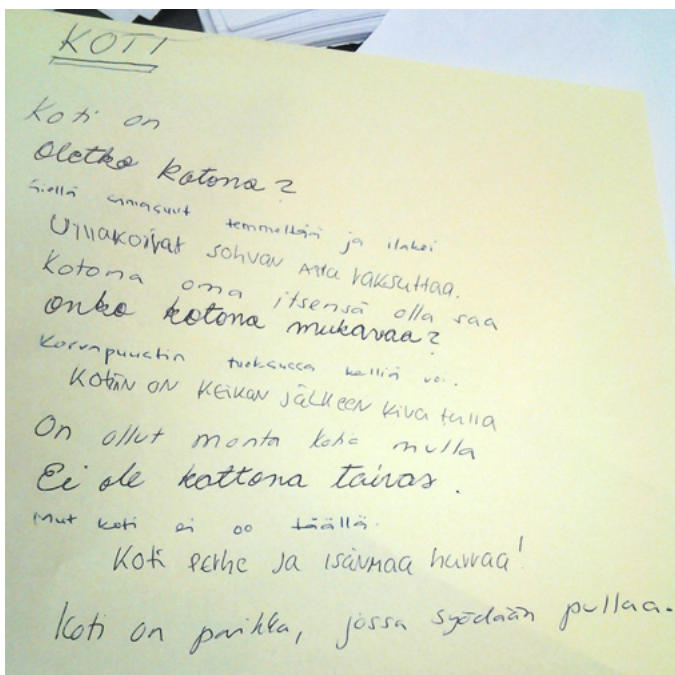 KOTI
Koti on
oletko kotona?
Siellä umasuut temmeltää ja ilakoi
Villakoirat sohvan alta raksuttaa.
Kotona oma itsensä olla saa
onko kotona mukavaa?
Korvapuustin tuoksussa kelliä voi.
KOTIIN ON KEIKAN JÄLKEEN kiva tulla
On ollut monta kotia mulla
Ei ole kattona taivas.
Mut koti ei oo täällä.
Koti perhe ja isänmaa hurraa!
Koti on paikka, jossa syödään pullaa.